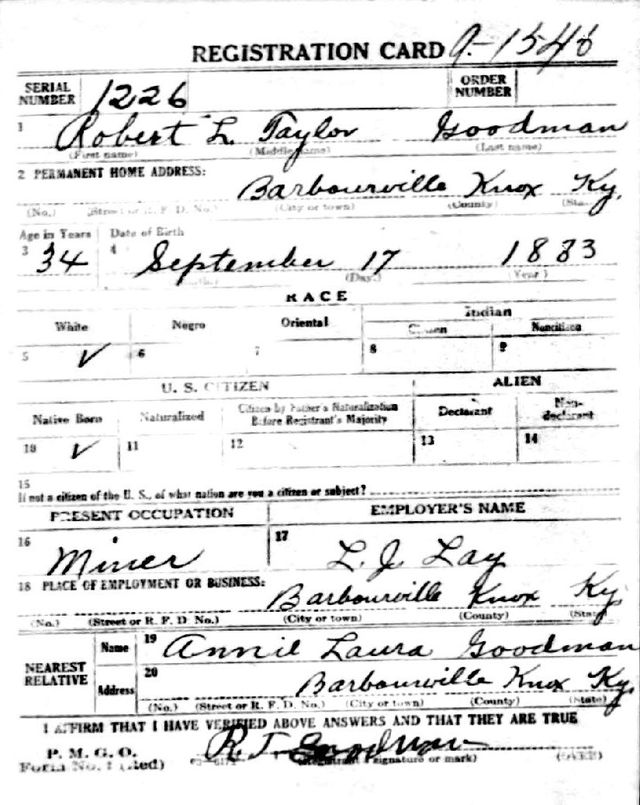 REGISTRATION CARD 9-1548
SERIAL NUMBER 1226 ORDER NUMBER
1 Robert L. Taylor Goodman
(First name) (Middle name) (Last name)
2 PERMANENT HOME ADDRESS:
Barbourville Knox Ky.
(No.) (Street or R. F. D. No.) (City or town) (County) (State)
Age in Years Date of Birth
3 34 4 September 17 1883
(Month) (Day) (Year)
RACE
White Negro Oriental Indian
Citizen Noncitizen
5 ✓ 6 7 8 9
U. S. CITIZEN ALIEN
Native Born Naturalized Citizen by Father's Naturalization Before Registrant's Majority Declarant Non-declarant
10 ✓ 11 12 13 14
15
If not a citizen of the U. S., of what nation are you a citizen or subject?
PRESENT OCCUPATION EMPLOYER'S NAME
16 Miner 17 L. J. Lay
18 PLACE OF EMPLOYMENT OR BUSINESS:
Barbourville Knox Ky
(No.) (Street or R. F. D. No.) (City or town) (County) (State)
NEAREST RELATIVE
Name 19 Annie Laura Goodman
Address 20 Barbourville Knox Ky.
(No.) (Street or R. F. D. No.) (City or town) (County) (State)
I AFFIRM THAT I HAVE VERIFIED ABOVE ANSWERS AND THAT THEY ARE TRUE
P. M. G. O.
Form No. 1 (Red) R. T. Goodman
(Registrant's signature or mark) (OVER)